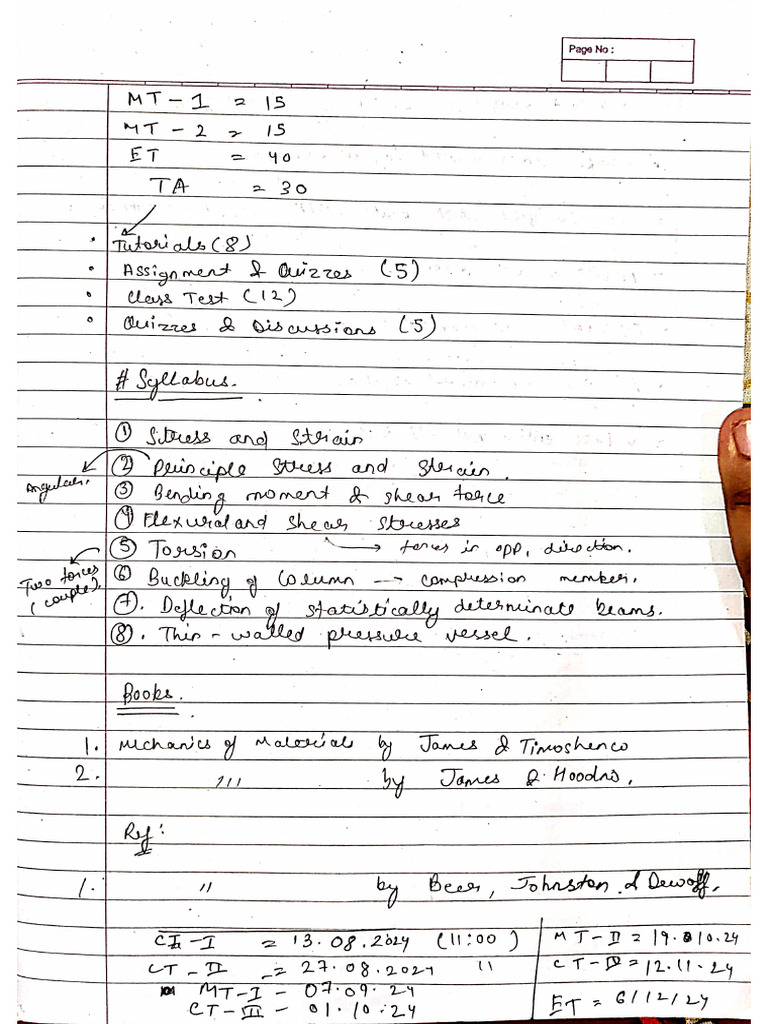 Page No :
MT - 1 = 15
MT - 2 = 15
ET = 40
TA = 30
• Tutorials (8)
• Assignment & Quizzes (5)
• Class Test (12)
• Quizzes & Discussions (5)
# Syllabus.
① Stress and Strain
② Principle Stress and Strain.
Angular.
③ Bending moment & shear force
④ Flexural and Shear Stresses
→ forces in opp. direction.
⑤ Torsion
Two forces (couple).
⑥ Buckling of Column → compression member.
⑦. Deflection of statistically determinate beams.
⑧. Thin - walled pressure vessel.
Books.
1. Mechanics of Materials by James & Timoshenco
2. ,,, by James &
Ref:
1. ,, by Beer, Johnston & Dewoff.
CT - I = 13.08.2024 (11:00)
CT - II = 27.08.2024 11
MT - I - 07.09.24
CT - III - 01.10.24
MT - II = 19.10.24
CT - IV = 12.11.24
ET = 6/12/24